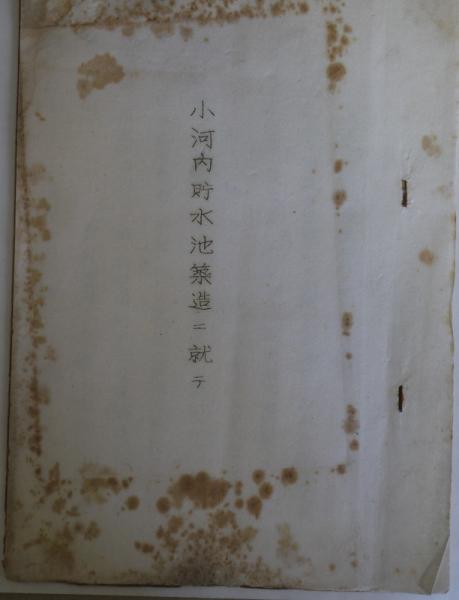 小河内貯水池築造ニ就テ